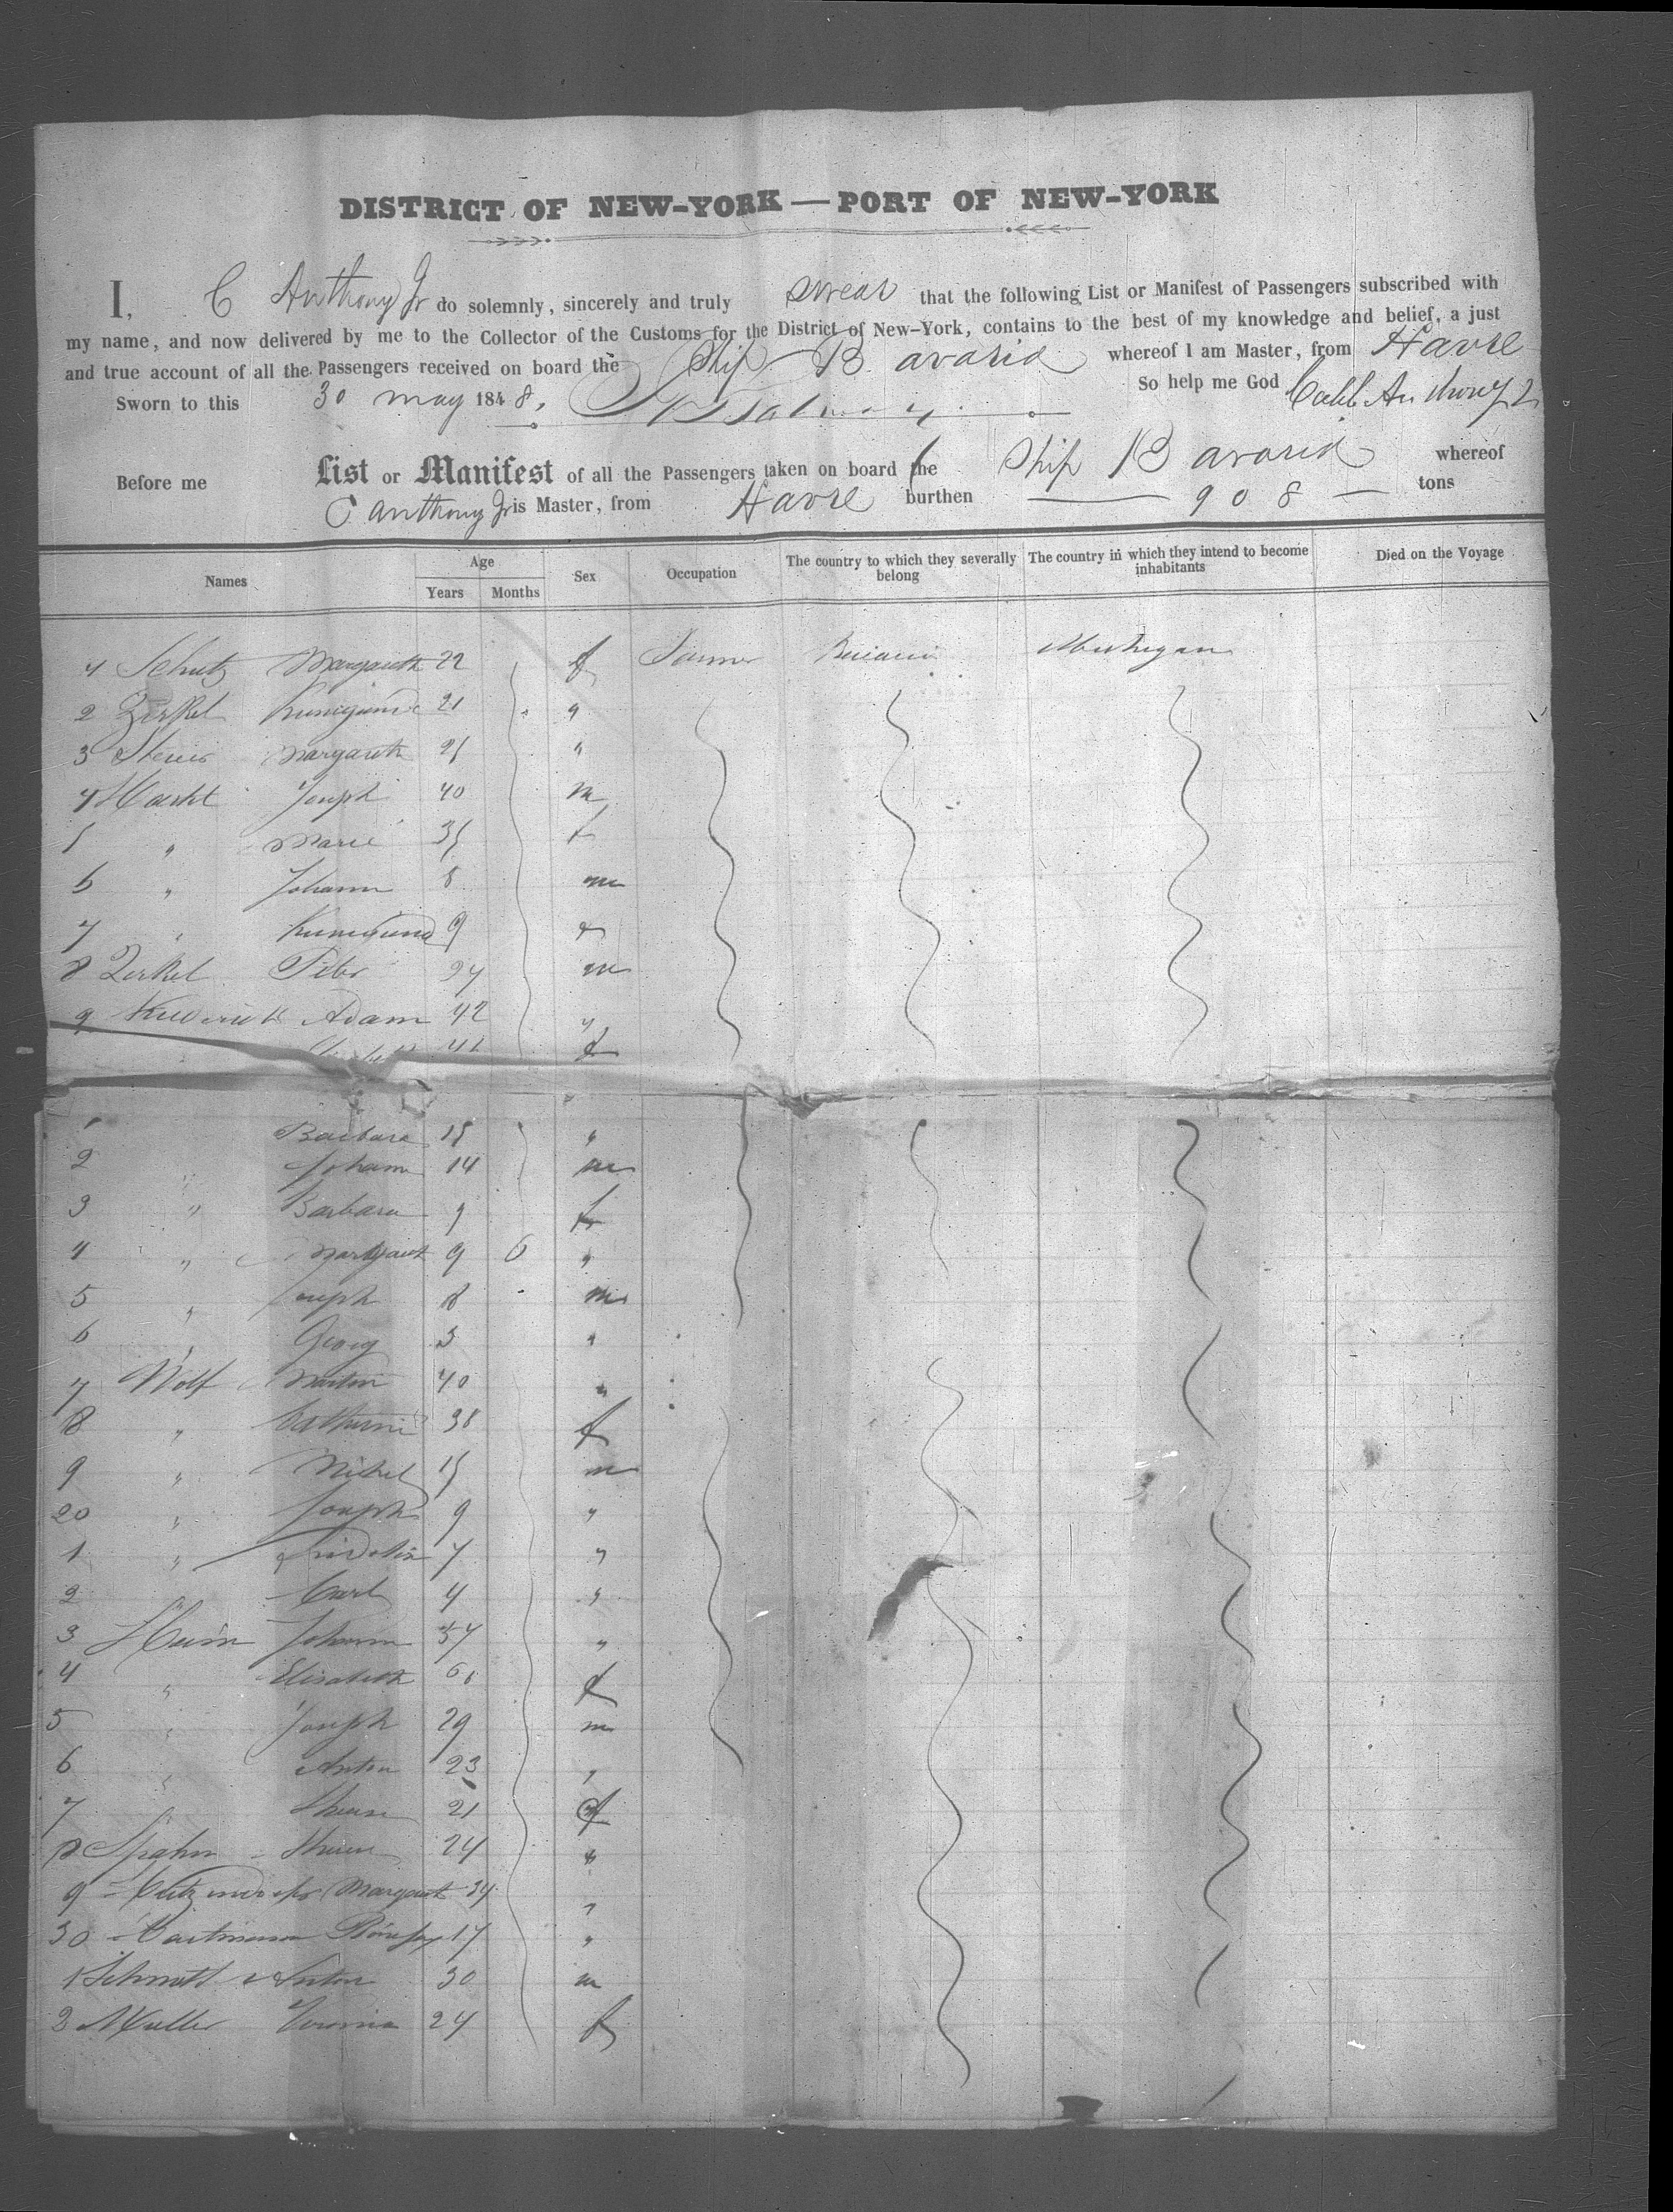 DISTRICT OF NEW-YORK — PORT OF NEW-YORK
I, C Anthony Jr do solemnly, sincerely and truly swear that the following List or Manifest of Passengers subscribed with
my name, and now delivered by me to the Collector of the Customs for the District of New-York, contains to the best of my knowledge and belief, a just
and true account of all the Passengers received on board the Ship Bavaria whereof I am Master, from Havre
Sworn to this 30 may 1848, So help me God Caleb Anthony Jr
Before me List or Manifest of all the Passengers taken on board the Ship Bavaria whereof
C Anthony Jr is Master, from Havre burthen 908 tons
Names Age Years Months Sex Occupation The country to which they severally belong The country in which they intend to become inhabitants Died on the Voyage
Schutz Margareth 22 f Farmer Bavaria Michigan
2 Zirkel Kunigund 21 "
3 Margareth 21 "
4 Joseph 40 m
5 " Marie 35 f
6 " Johann 8 m
7 " Kunigund 9 f
8 Zirkel Peter 24 m
9 Adam 42 "
f
1 Barbara 15 "
2 " Johann 14 m
3 " Barbara 9 f
4 " Margareth 9 6 "
5 " Joseph 8 m
6 " Georg 3 "
7 Wolf Martin 40 "
8 " Catharine 38 f
9 " Michel 15 m
20 " Joseph 9 "
1 " Fridolin 7 "
2 " Carl 4 "
3 Heim Johann 57 "
4 " Elisabeth 61 f
5 " Joseph 29 m
6 " Anton 23 "
7 Therese 21 f
8 Spahn Therese 24 "
9 Margareth 34 "
30 Hartmann 17 "
1 Schmitt Anton 30 m
2 Muller Veronica 24 f